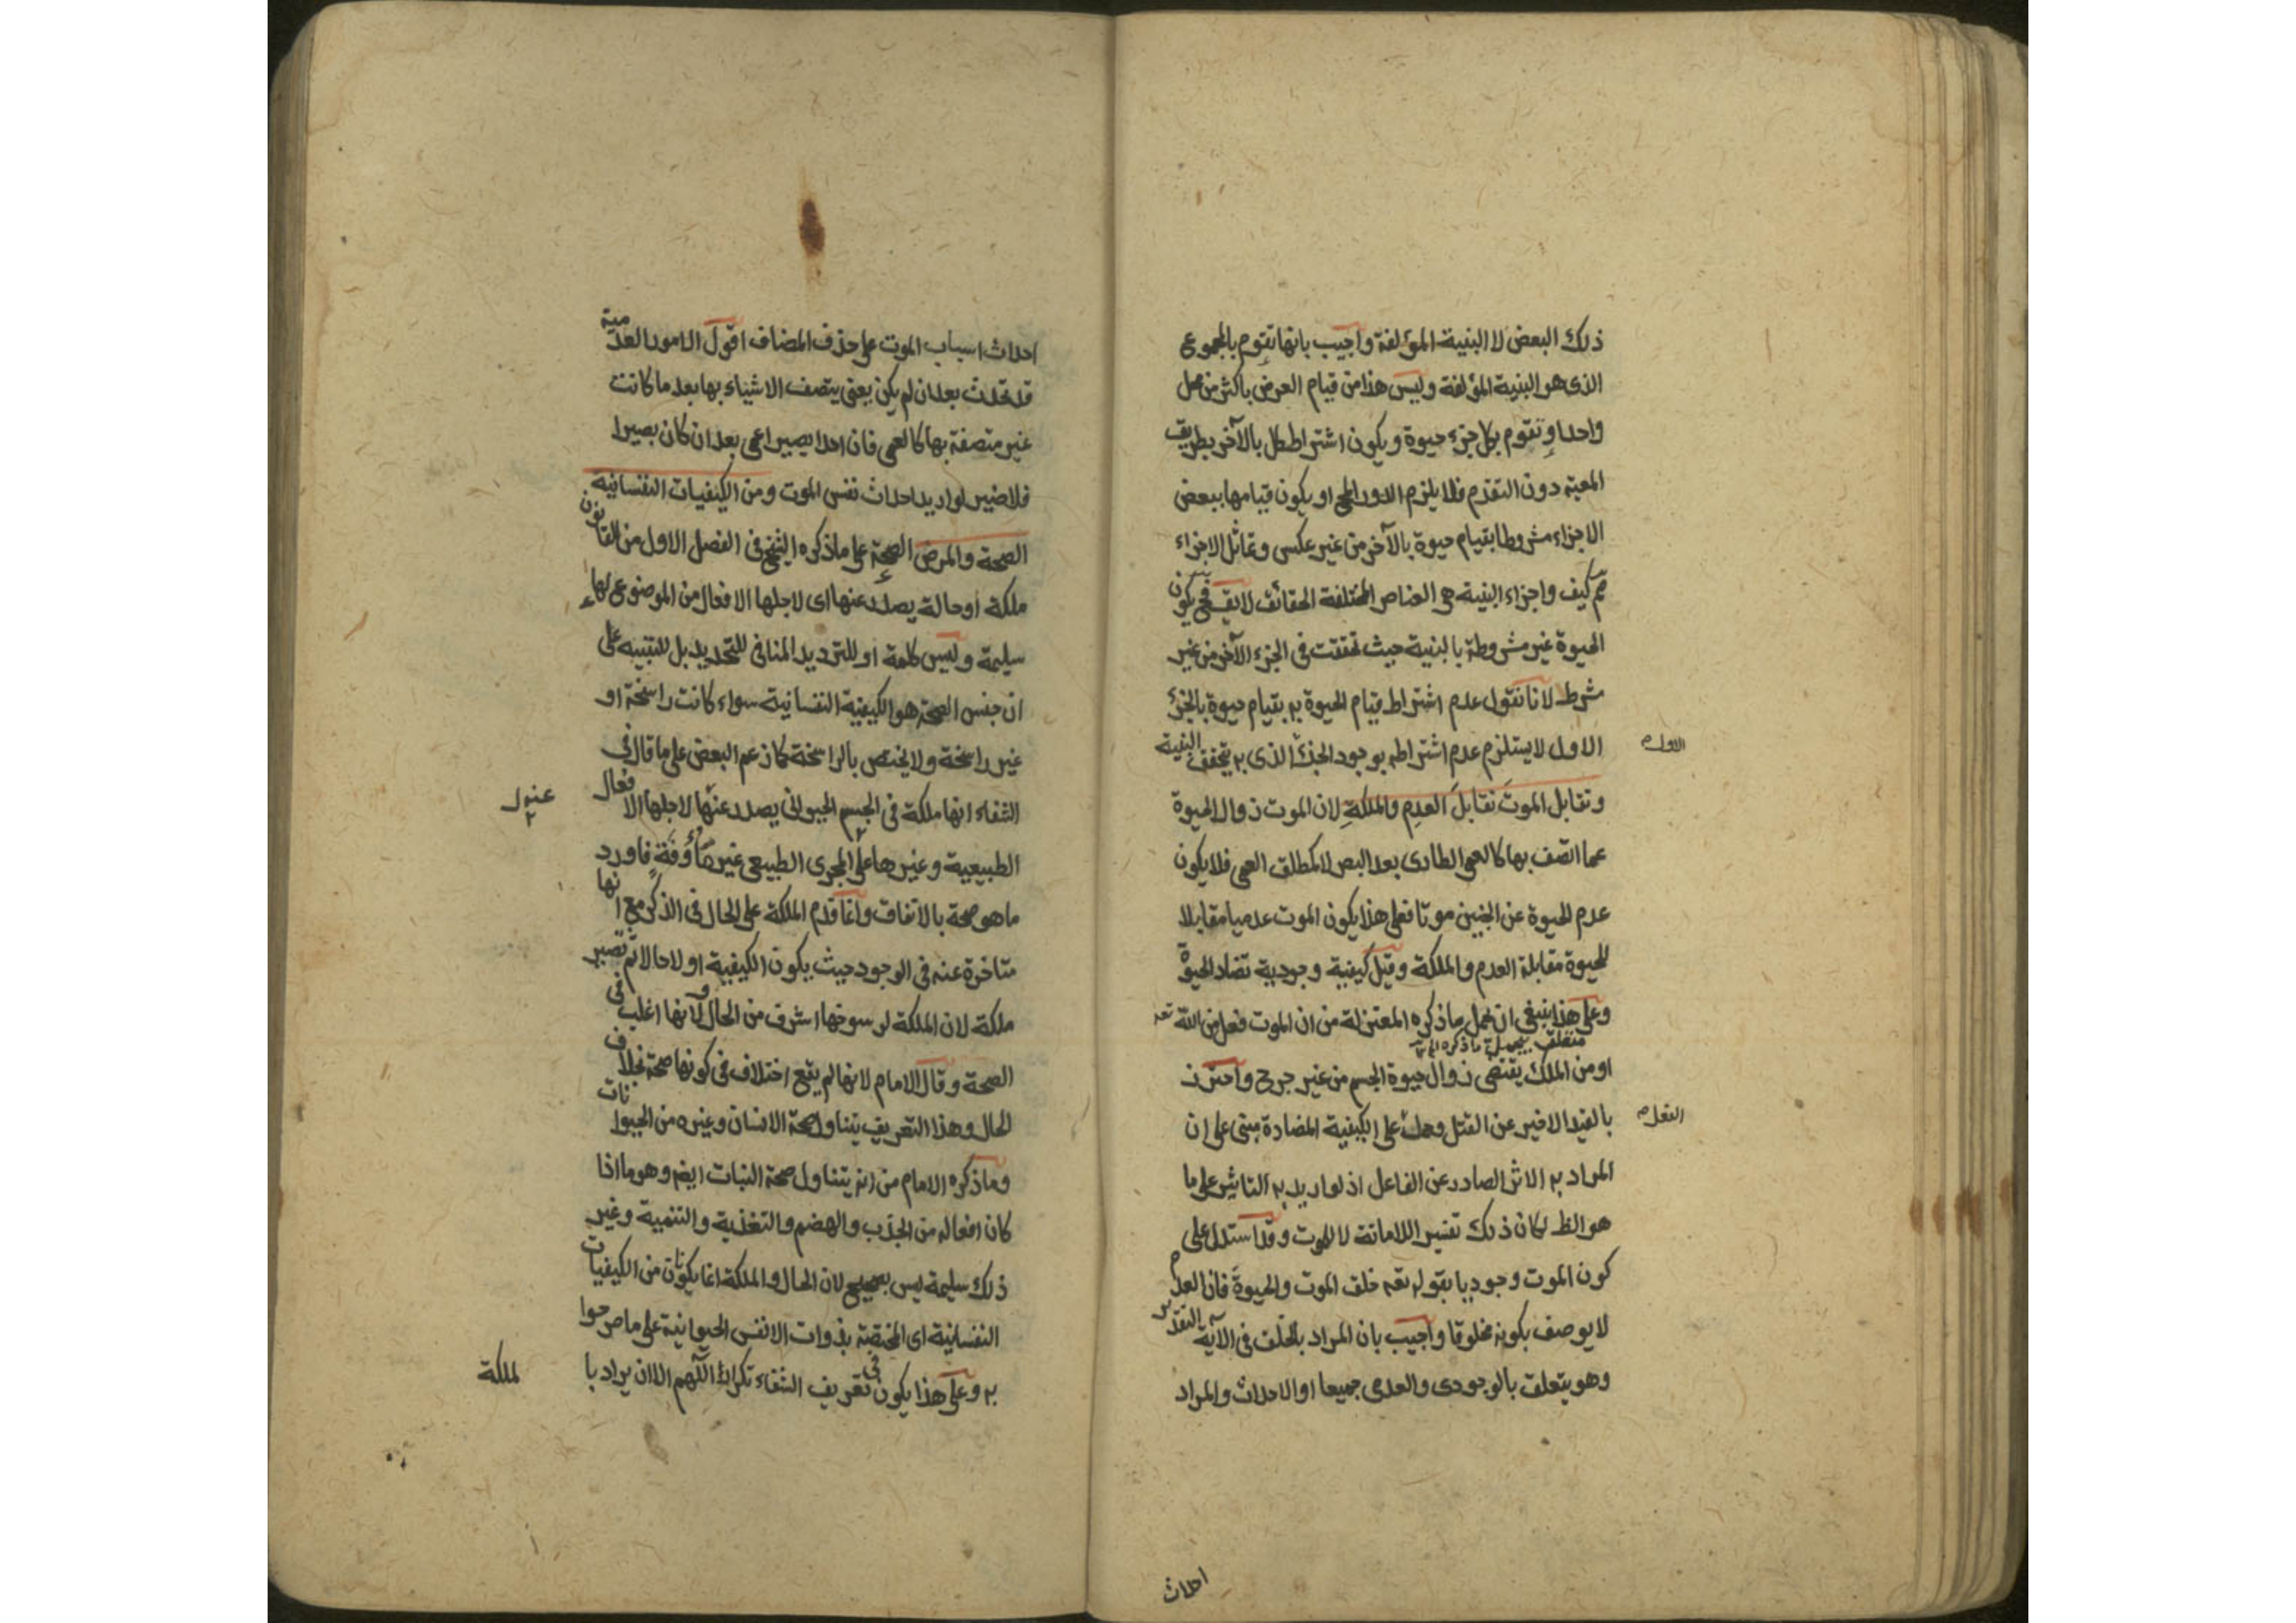 ذلك البعض لا البنية المؤلفة واجيب بانها تقوم بالمجموع
الذى هو البنية المؤلفة وليس هذا من قيام العرض باكثر من محل
واحد او تقوم بكل جزء حيوة ويكون اشتراط كل بالآخر بطريق
المعية دون التقدم فلا يلزم الدور المح او يكون قيامها ببعض
الاجزاء مشروطا بقيام حيوة بالآخر من غير عكس وتماثل الاجزاء
مم كيف واجزاء البنية هى العناصر المختلفة الحقائق لا يق فح يكون
الحيوة غير مشروطة بالبنية حيث تحققت فى الجزء الآخر من غير
شرط لانا نقول عدم اشتراط قيام الحيوة به بقيام حيوة بالجزء
الاول لا يستلزم عدم اشتراطه بوجود الجزء الذى به يتحقق البنية
الاول م
وتقابل الموت تقابل العدم والملكة لان الموت زوال الحيوة
عما اتصف بها كالعمى الطارى بعد البصر لا كمطلق العمى فلا يكون
عدم الحيوة عن الجنين موتا فعلى هذا يكون الموت عدميا مقابلا
للحيوة مقابلة العدم والملكة وقيل كيفية وجودية تضاد الحيوة
وعلى هذا ينبغى ان يحمل ما ذكره المعتزلة من ان الموت فعل من الله تعه
او من الملك يقتضى زوال حيوة الجسم من غير جرح واحترز
بالقيد الاخير عن القتل وحمل على الكيفية المضادة مبنى على ان
الفعل م
المراد به الاثر الصادر عن الفاعل اذ لو اريد به التاثير على ما
هو الظ لكان ذلك تفسير اللاماتة لا للموت وقد استدل على
كون الموت وجوديا بقوله تعه خلق الموت والحيوة فان العدم
لا يوصف بكونه مخلوقا واجيب بان المراد بالخلق فى الآية التقدير
وهو يتعلق بالوجودى والعدمى جميعا او الاحداث والمراد
احداث
احداث اسباب الموت على حذف المضاف اقول الامور العدمية
قد تحدث بعد ان لم يكن يعنى يتصف الاشياء بها بعد ما كانت
غير متصفة بها كالعمى فان احدا يصير اعمى بعد ان كان بصيرا
فلا ضير لو اريد احداث نفس الموت ومن الكيفيات النفسانية
الصحة والمرض الصحة على ما ذكره الشيخ فى الفصل الاول من القانون
ملكة او حالة يصدر عنها اى لاجلها الافعال من الموضوع لها
سليمة وليس كلمة او للترديد المنافى للتحديد بل للتنبيه على
ان جنس الصحة هو الكيفية النفسانية سواء كانت راسخة او
غير راسخة ولا يختص بالراسخة كما زعم البعض على ما قال فى
الشفاء انها ملكة فى الجسم الحيوانى يصدر عنها لاجلها الافعال
الطبيعية وغيرها على المجرى الطبيعى غير مأوفة فاورد
ما هو صحة بالاتفاق وانما قدم الملكة على الحال فى الذكر مع انها
متاخرة عنه فى الوجود حيث يكون الكيفية اولا حالا ثم تصير
ملكة لان الملكة لرسوخها اشرف من الحال ولانها اغلب فى
الصحة وقال الامام لانها لم يقع اختلاف فى كونها صحة بخلاف
الحال وهذا التعريف يتناول صحة الانسان وغيره من الحيوانات
وما ذكره الامام من انه يتناول صحة النبات ايضه وهو ما اذا
كان افعاله من الجذب والهضم والتغذية والتنمية وغير
ذلك سليمة ليس بصحيح لان الحال والملكة انما يكونان من الكيفيات
النفسانية اى المختصة بذوات الانفس الحيوانية على ما صرحوا
به وعلى هذا يكون فى تعريف الشفاء تكرار اللهم الا ان يراد با
لملكة